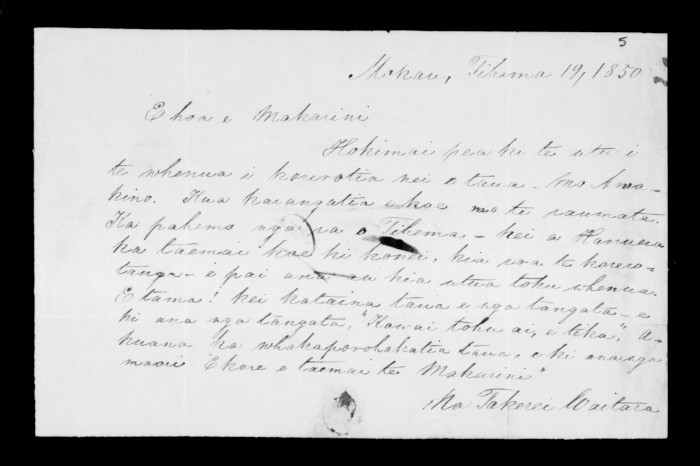 5
Mokau, Tihema 19, 1850
E hoa e Makarini
Hokimai pea ki te utu i
te whenua i korerotia nei e taua. Mo Awa-
kino. Kua karangatia e koe mo te raumata.
Ka pahemo nga ra o Tihema - kei a Hanuera
ka taemai koe ki konei, kia roa te korero-
tanga - e pai ana au kia utua toku whenua.
E tama! kei kataina taua e nga tangata - e
ki ana nga tangata, "Kowai tohu ai, e tika", A-
kuana ka whakaporohakatia taua, e ki ana nga
maori "Ekore e taemai te Makarini"
Na Takerei Waitara